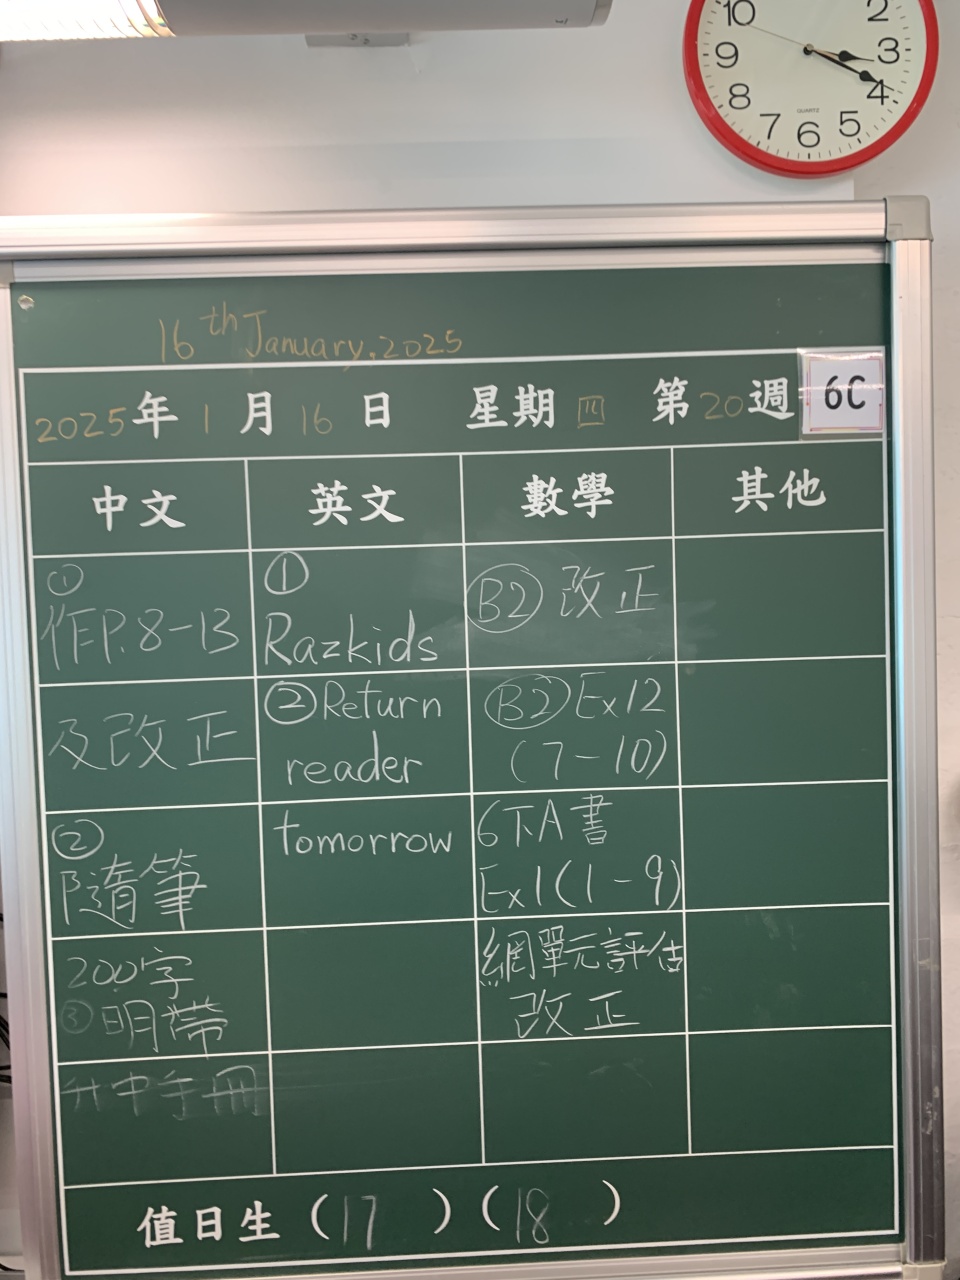 10
2
9
3
8
4
7
6
5
QUARTZ
16th January, 2025
2025年 1 月 16 日 星期 四 第 20 週
6C
中文
英文
數學
其他
①
作P.8-13
及改正
②
隨筆
200字
③明帶
升中手冊
①
Razkids
②Return
reader
tomorrow
B2 改正
B2 Ex12
(7-10)
6下A書
Ex1(1-9)
網單元評估
改正
值日生(17)(18)